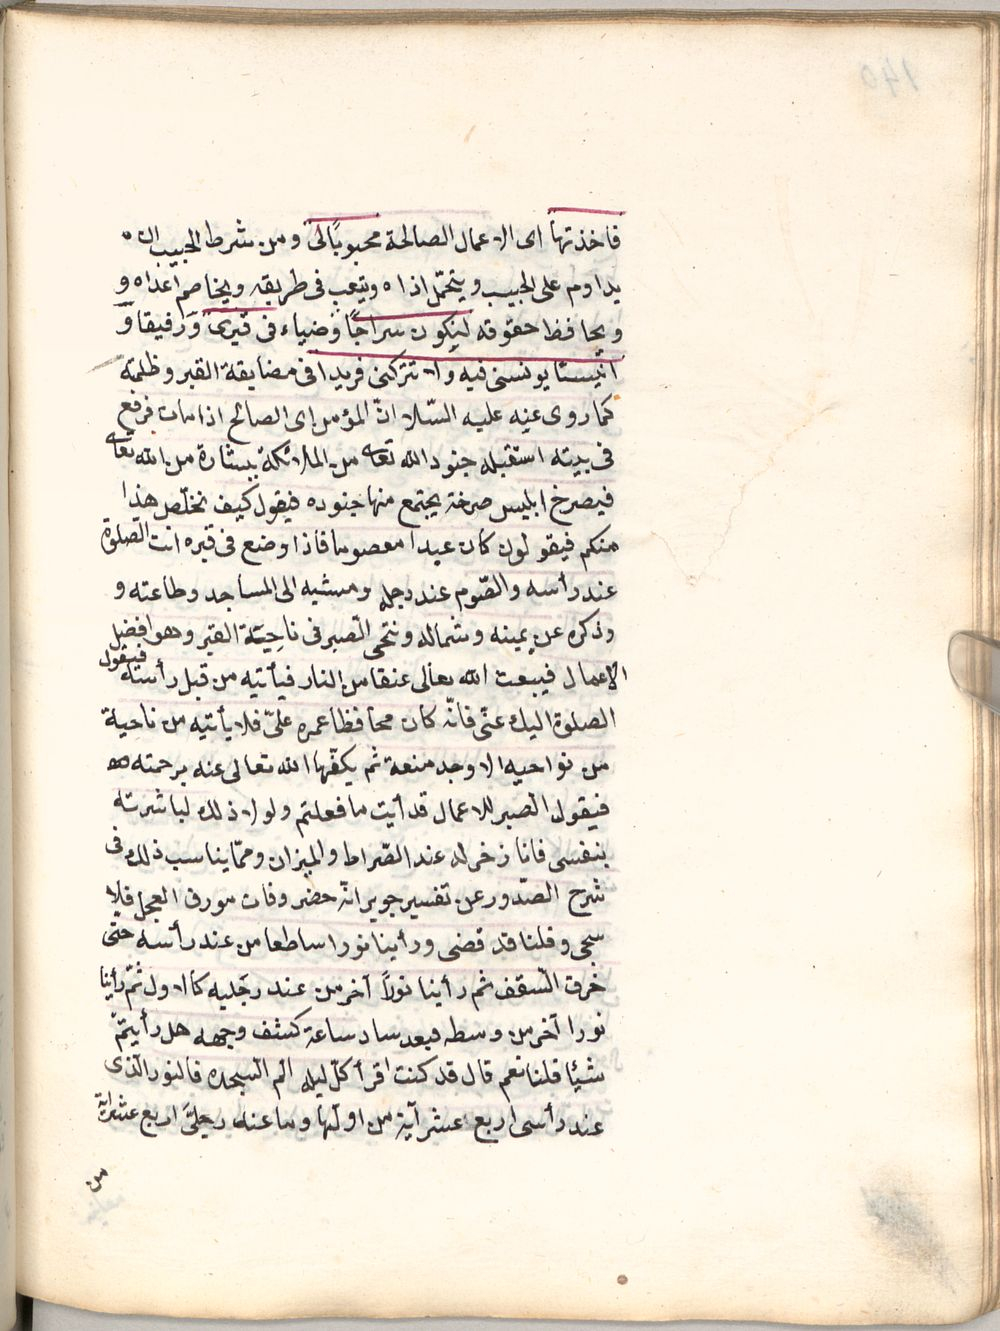 فاخذتها اى الاعمال الصالحة محبوبًا لى ومن شرط الحبيب ان
يداوم على الحبيب ويتحمّل اذاه ويتعب فى طريقه ويخاصم اعداه و
ويحافظ حقوقه ليكون سراجًا وضياء فى قبرى ورفيقا و
انيسًا يونسنى فيه ولا تتركنى فريدا فى مضايقة القبر وظلمته
كما روى عنه عليه السّلا انّ المؤمن اى الصالح اذا مات فرفع
فى بيته استقبله جنود الله تعا من الملائكة ببشارة من الله تعا
فيصرخ ابليس صرخة يجتمع منها جنوده فيقول كيف تخلّص هذا
منكم فيقولون كان عبدا معصوما فاذا وضع فى قبره انت الصّلوة
عند رأسه والصّوم عند رجله ومشيه الى المساجد وطاعته و
وذكره عن يمينه وشماله ونتحى الصبر فى ناحيّة القبر وهو افضل
الاعمال فيبعث الله تعالى عنقا من النار فيأتيه من قبل رأسه فيقول
الصلوة اليك عنّى فانّه كان محافظا عمره علىّ فلا يأتيه من ناحية
من نواحيه الا وجد منعة ثم يكفّها الله تعالى عنه برحمته
فيقول الصبر للاعمال قد أيت ما فعلتم ولولا ذلك لباشرته
بنفسى فانا زخر له عند الصّراط والميزان وممّا يناسب ذلك فى
شرح الصّدور عن تفسير جويبر انّه حضر وفات مورق العجل فلا
سجى وقلنا قد قضى ورأينا نورا ساطعا من عند رأسه حتّى
خرق السّقف ثم رأينا نورًا آخر من عند رجليه كالاول ثمّ رأينا
نورا آخر من وسطه فبعد ساد ساعة كشف وجهه هل رأيتمّ
شيئا قلنا نعم قال قد كنت اقرأ كلّ ليله الم السّجده فالنور الّذى
عند رأسى اربع عشر آية من اولها وما عند رجلىّ اربع عشر آية
من